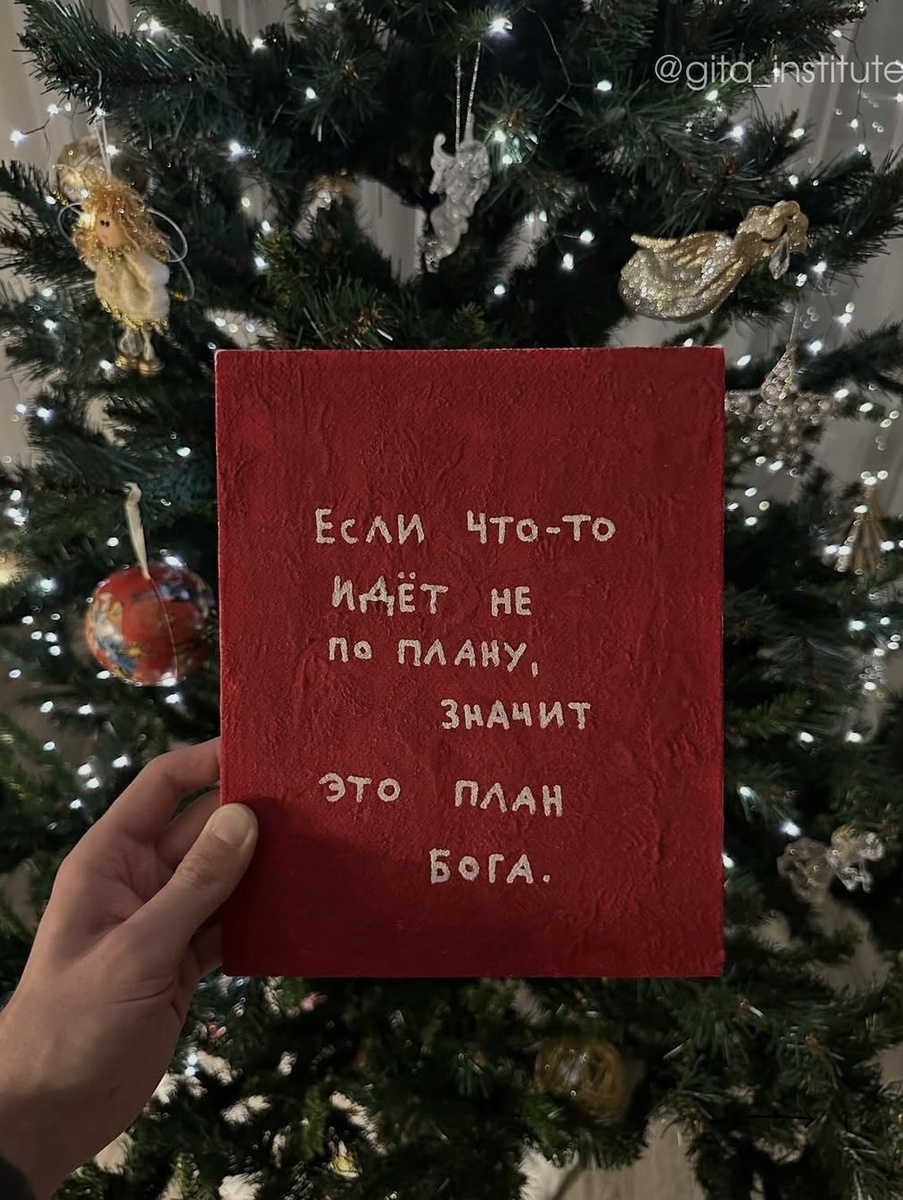 @gita_institute
Если что-то
идёт не
по плану,
значит
это план
Бога.